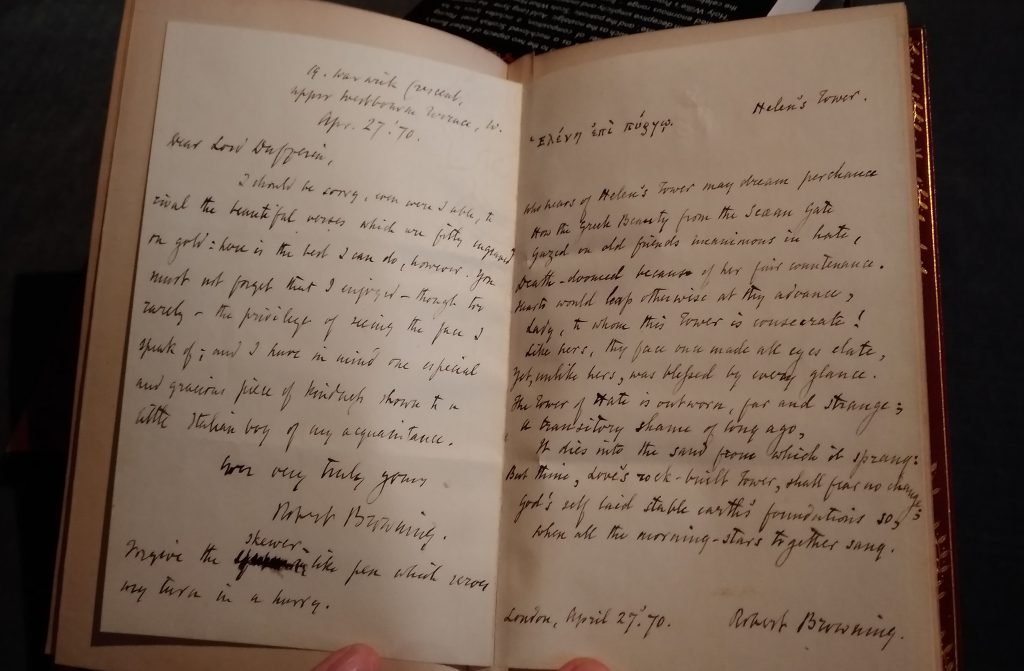 19. Warwick Crescent,
Upper Westbourne Terrace, W.
Apr. 27.' 70.
Dear Lord Dufferin,
I should be sorry, even were I able, to
rival the beautiful verses which are fitly engraved
on gold: here is the best I can do, however. You
must not forget that I enjoyed – though too
rarely – the privilege of seeing the face I
speak of; and I have in mind one especial
and gracious piece of kindness shown to a
little Italian boy of my acquaintance.
Ever very truly yours
Robert Browning.
skewer
Forgive the -like pen which serves
my turn in a hurry.
Helen's Tower.
Ἑλένη ἐπὶ πύργῳ.
Who hears of Helen's Tower may dream perchance
How the Greek Beauty from the Scæan Gate
Gazed on old friends unanimous in hate,
Death-doomed because of her fair countenance.
Hearts would leap otherwise at thy advance,
Lady, to whom this Tower is consecrate!
Like hers, thy face once made all eyes elate,
Yet, unlike hers, was blessed by every glance.
The Tower of Hate is outworn, far and strange:
A transitory shame of long ago,
It dies into the sand from which it sprang:
But thine, Love's rock-built Tower, shall fear no change:
God's self laid stable earth's foundations so,
When all the morning-stars together sang.
London, April 27.' 70.
Robert Browning.